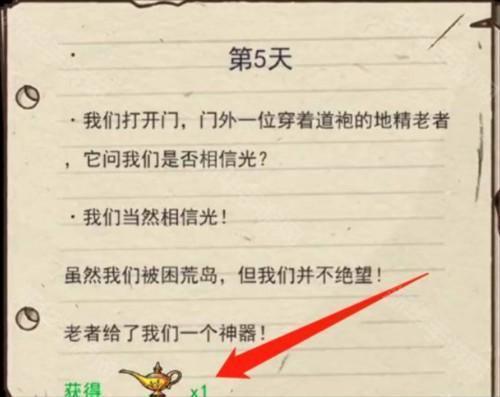 第5天
·我们打开门，门外一位穿着道袍的地精老者
，它问我们是否相信光？
·我们当然相信光！
虽然我们被困荒岛，但我们并不绝望！
老者给了我们一个神器！
获得 x1